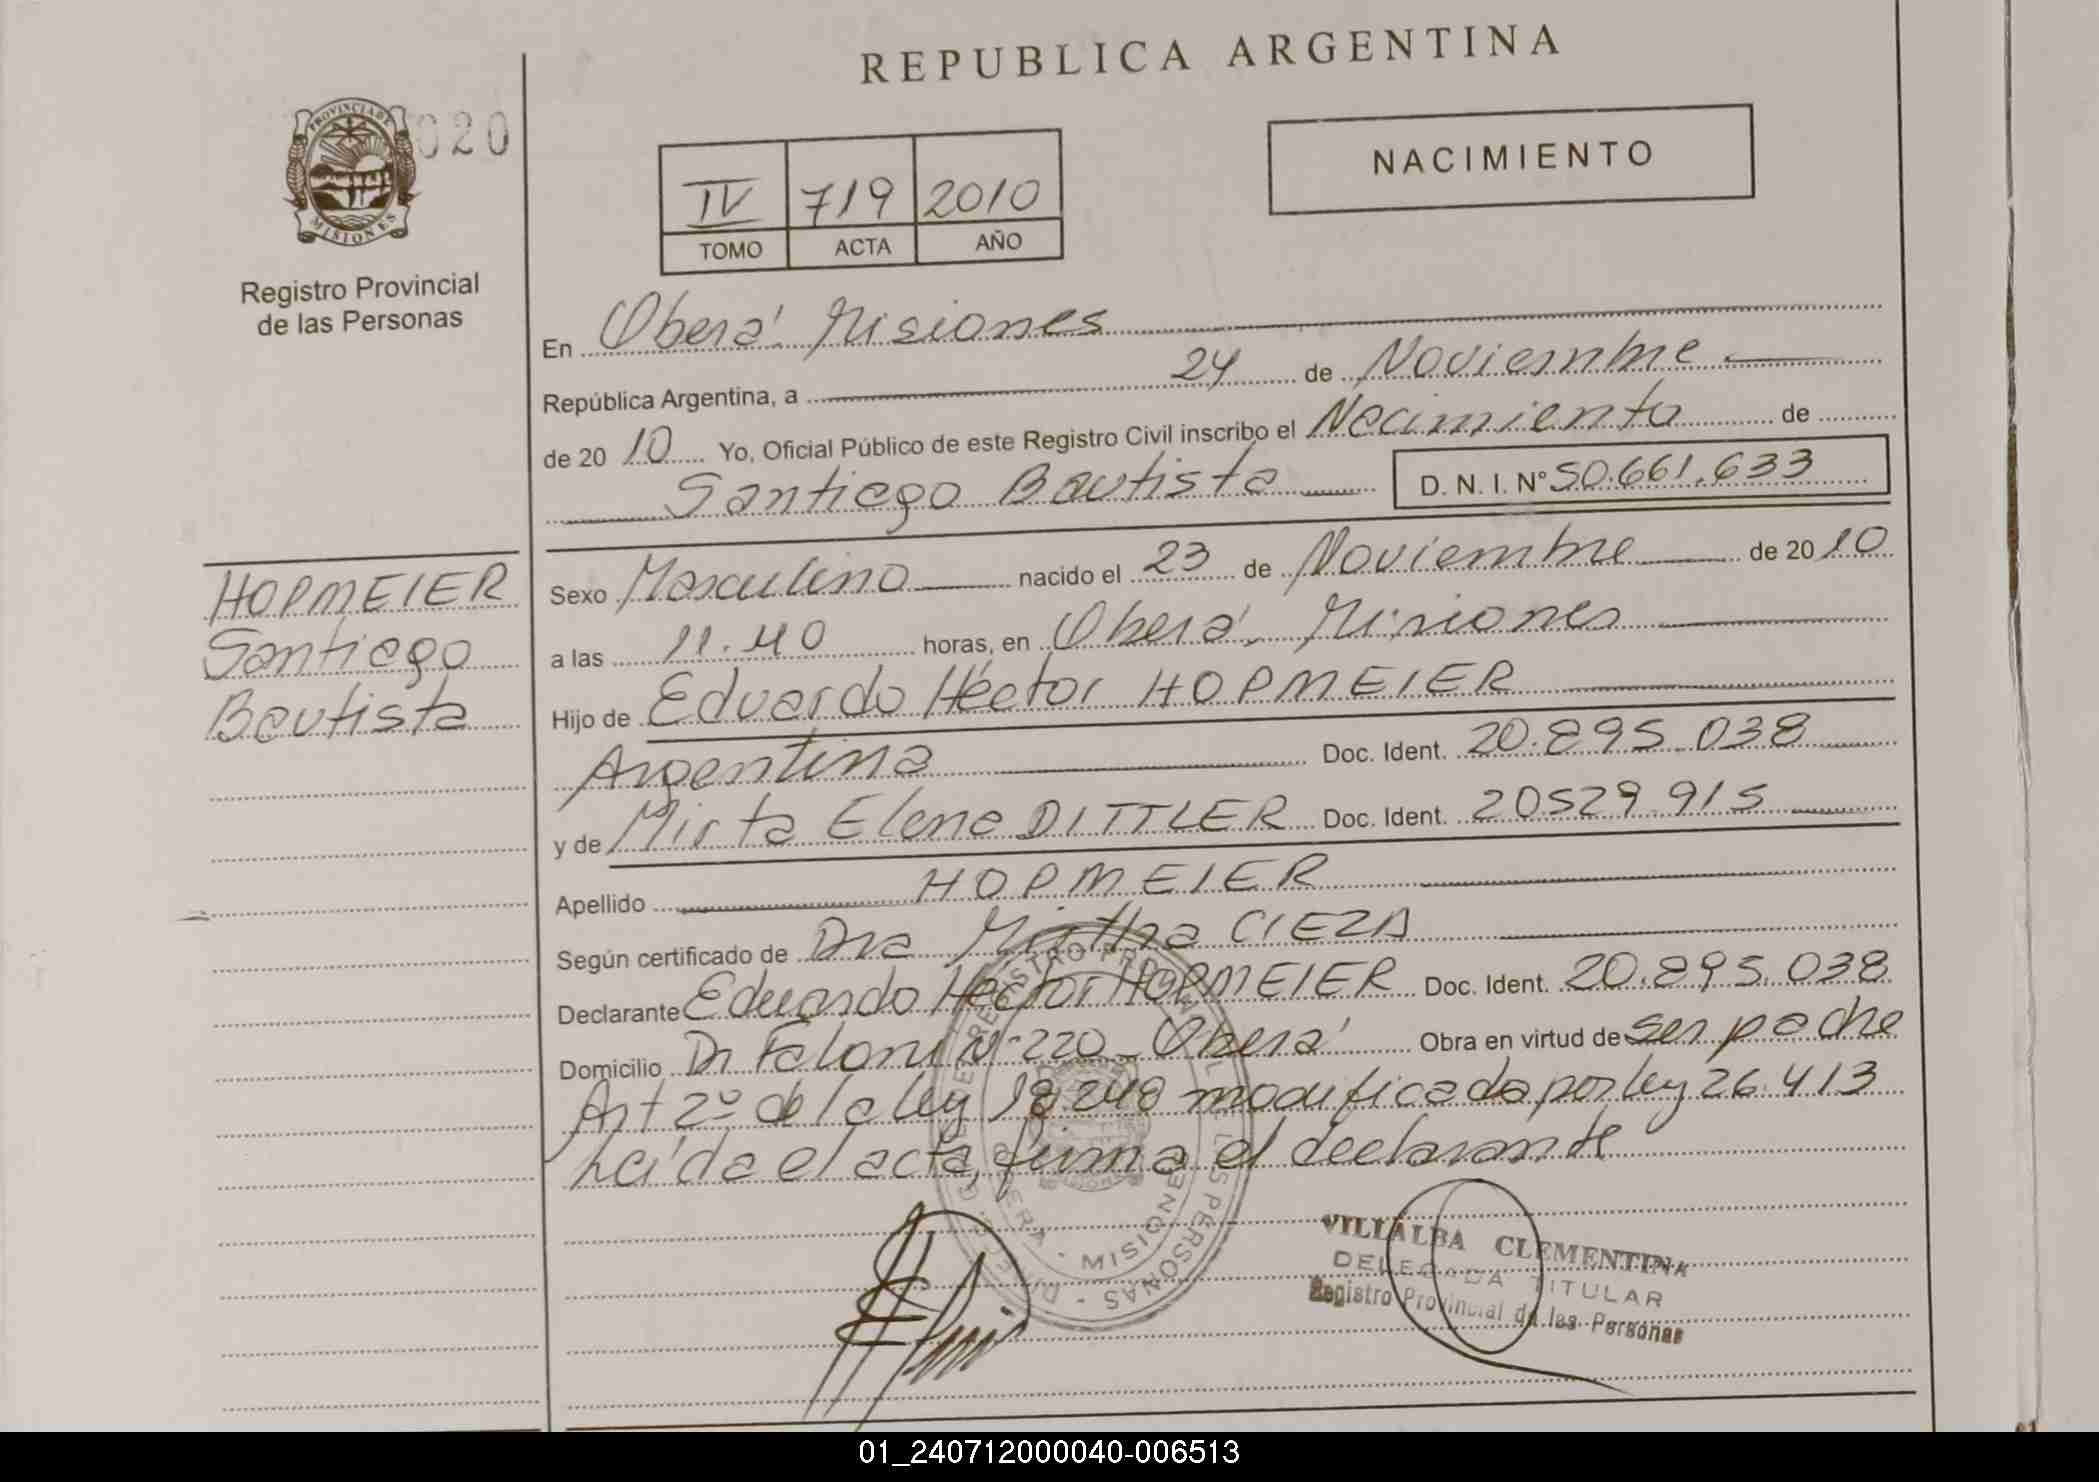 REPUBLICA ARGENTINA
020
PROVINCIA DE
MISIONES
Registro Provincial
de las Personas
IV 719 2010
TOMO ACTA AÑO
NACIMIENTO
En Oberá Misiones
República Argentina, a 24 de Noviembre
de 20 10 Yo, Oficial Público de este Registro Civil inscribo el Nacimiento de
Santiago Bautista D. N. I. N° 50.661.633
HOPMEIER
Santiago
Bautista
Sexo Masculino nacido el 23 de Noviembre de 20 10
a las 11.40 horas, en Oberá, Misiones
Hijo de Eduardo Héctor HOPMEIER
Argentina Doc. Ident. 20.895.038
y de Mirta Elena DITTLER Doc. Ident. 20529.915
Apellido HOPMEIER
Según certificado de Dra Mirtha CIEZA
Declarante Eduardo Héctor HOPMEIER Doc. Ident. 20.895.038
Domicilio Dr Faloni N° 220 Oberá Obra en virtud de ser padre
Art 2º de la ley 18.248 modificada por ley 26.413
Leída el acta, firma el declarante
REGISTRO PROVINCIAL DE LAS PERSONAS
OBERA - MISIONES
VILLALBA CLEMENTINA
DELEGADA TITULAR
Registro Provincial de las Personas
01_240712000040-006513